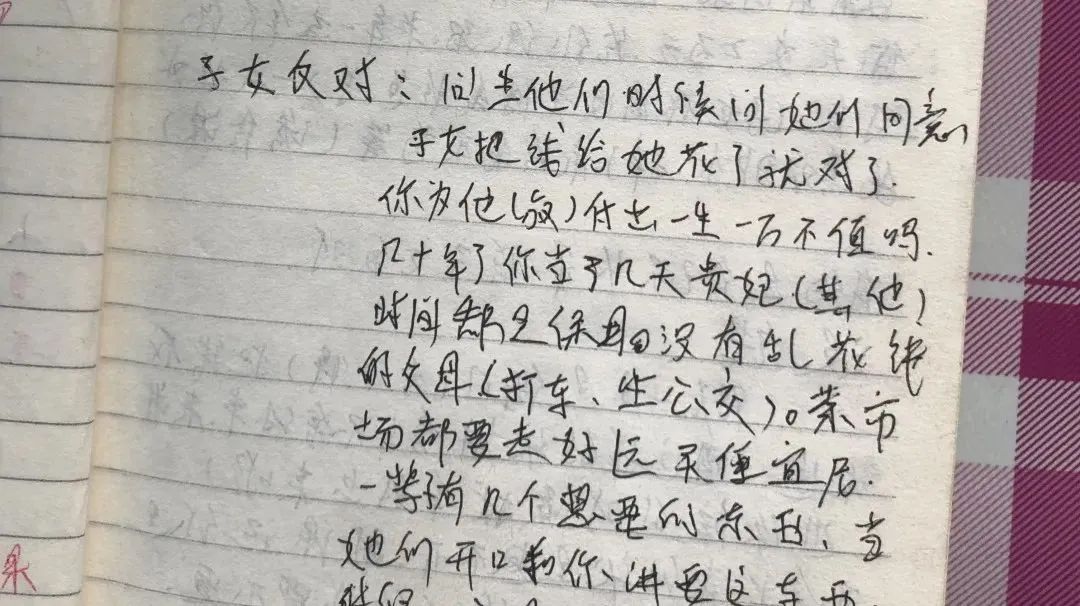 子女反对：问生他们时候问她们同意
子女把钱给她花了就对了.
你为他(叔)付出一生一万不值吗.
几十年了你当了几天贵妃(其他)
时间都是保母。没有乱花钱
的父母(打车、坐公交)。菜市
场都要走好远买便宜店.
一辈子有几个想要的东西、当
她们开口和你、讲要这东西
时候
采